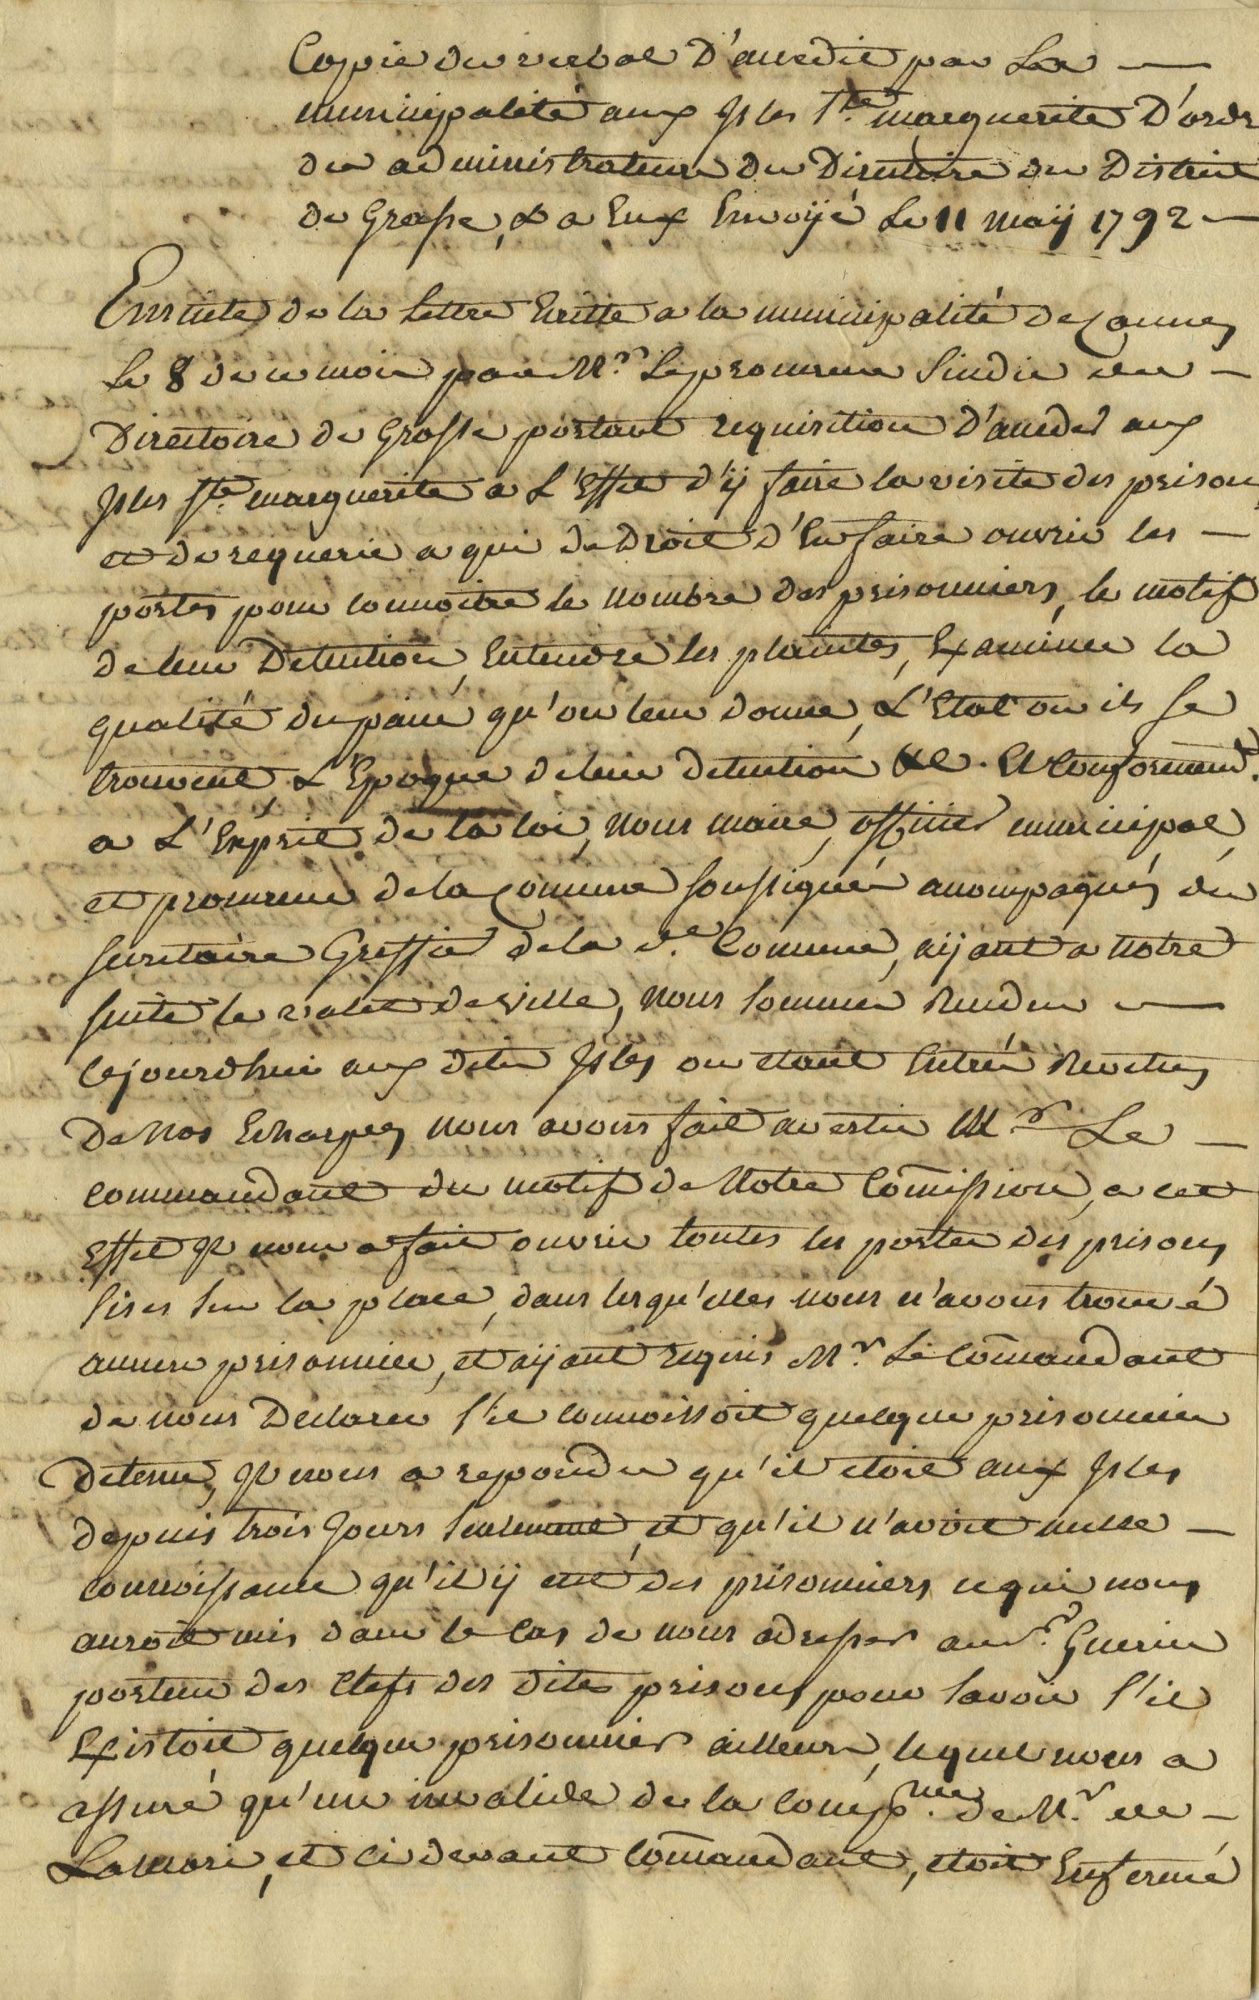 Copie du verbal D'accedit par La —
municipalité aux Isles Ste. marguerite D'ordre
des administrateurs du Directoire du District
de Grasse, & a Eux Envoÿé Le 11 maÿ 1792 —
Ensuite de la Lettre Ecritte a la municipalité de Cannes
Le 8 de ce mois par Mr. Le procureur Sindic du —
Directoire de Grasse portant requisition D'acceder aux
Isles Ste. marguerite a L'Effet d'ÿ faire la visite des prisons
et de requerir a qui de Droit d'En faire ouvrir les —
portes pour connoitre le nombre des prisonniers, le motif
de leur Detention, Entendre les plaintes, Examiner la
qualité du pain qu'on leur donne, L'Etat ou ils se
trouvent, & L'Epoque de leur detention &c. Et Conformemt.
a L'Esprit de la loi, nous maire, officier municipal,
et procureur de la Comune soussignés acompagnés du
secretaire Greffier de la de. Comune, aÿant a notre
suite le valet de ville, nous sommes Rendus —
cejourdhui aux dites Isles ou etant Entrés Revetus
De nos Echarpes nous avons fait avertir Mr. Le —
commandant du motif de Notre Comission, a cet
Effet Il nous a fait ouvrir toutes les portes des prisons
sises sur la place, dans lesqu'elles nous n'avons trouvé
aucun prisonnier, et aÿant requis Mr. Le Comandant
de nous Declarer s'il connoissoit quelque prisonnier
detenu, Il nous a repondu qu'il etoit aux Isles
depuis trois Jours seulement, et qu'il n'avoit nulle —
connoissance qu'il ÿ eut des prisonniers, ce qui nous
auroit mis dans le cas de nous adresser au Sr. Guerin
porteur des Clefs des dites prisons, pour savoir s'il
Existoit quelque prisonnier ailleurs, lequel nous a
assuré qu'un invalide de la Comp.nie de Mr. de —
Lamori, et ci devant Comandant, etoit Enfermé